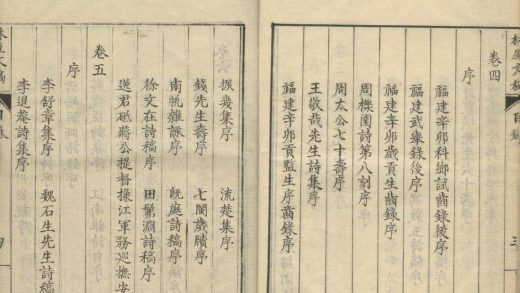 卷四
序
福建辛卯科鄉試齒錄後序
福建武舉錄後序
福建辛卯歲貢生齒錄序
福建辛卯貢監生序齒錄序
周櫟園詩第八刻序
周太公七十壽序
王敬哉先生詩集序
振幾集序
流楚集序
錢先生壽序
七閩歲牘序
南帆雜詠序
飲庭詩稿序
徐文在詩稿序
田髴淵詩稿序
送君砥將公提督操江軍務巡撫安
卷五
序
李舒章集序
魏石生先生詩稿
李退菴詩集序
目錄